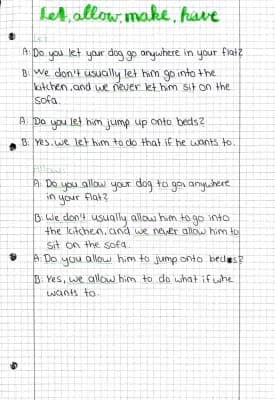 Let, allow, make, have
Let
A: Do you let your dog go anywhere in your flat?
B: We don't usually let him go into the
kitchen, and we never let him sit on the
sofa.
A: Do you let him jump up onto beds?
B: Yes, we let him to do that if he wants to.
Allow
A: Do you allow your dog to go anywhere
in your flat?
B: We don't usually allow him to go into
the kitchen, and we never allow him to
sit on the sofa.
A: Do you allow him to jump onto beds?
B: Yes, we allow him to do what if whe
wants to.